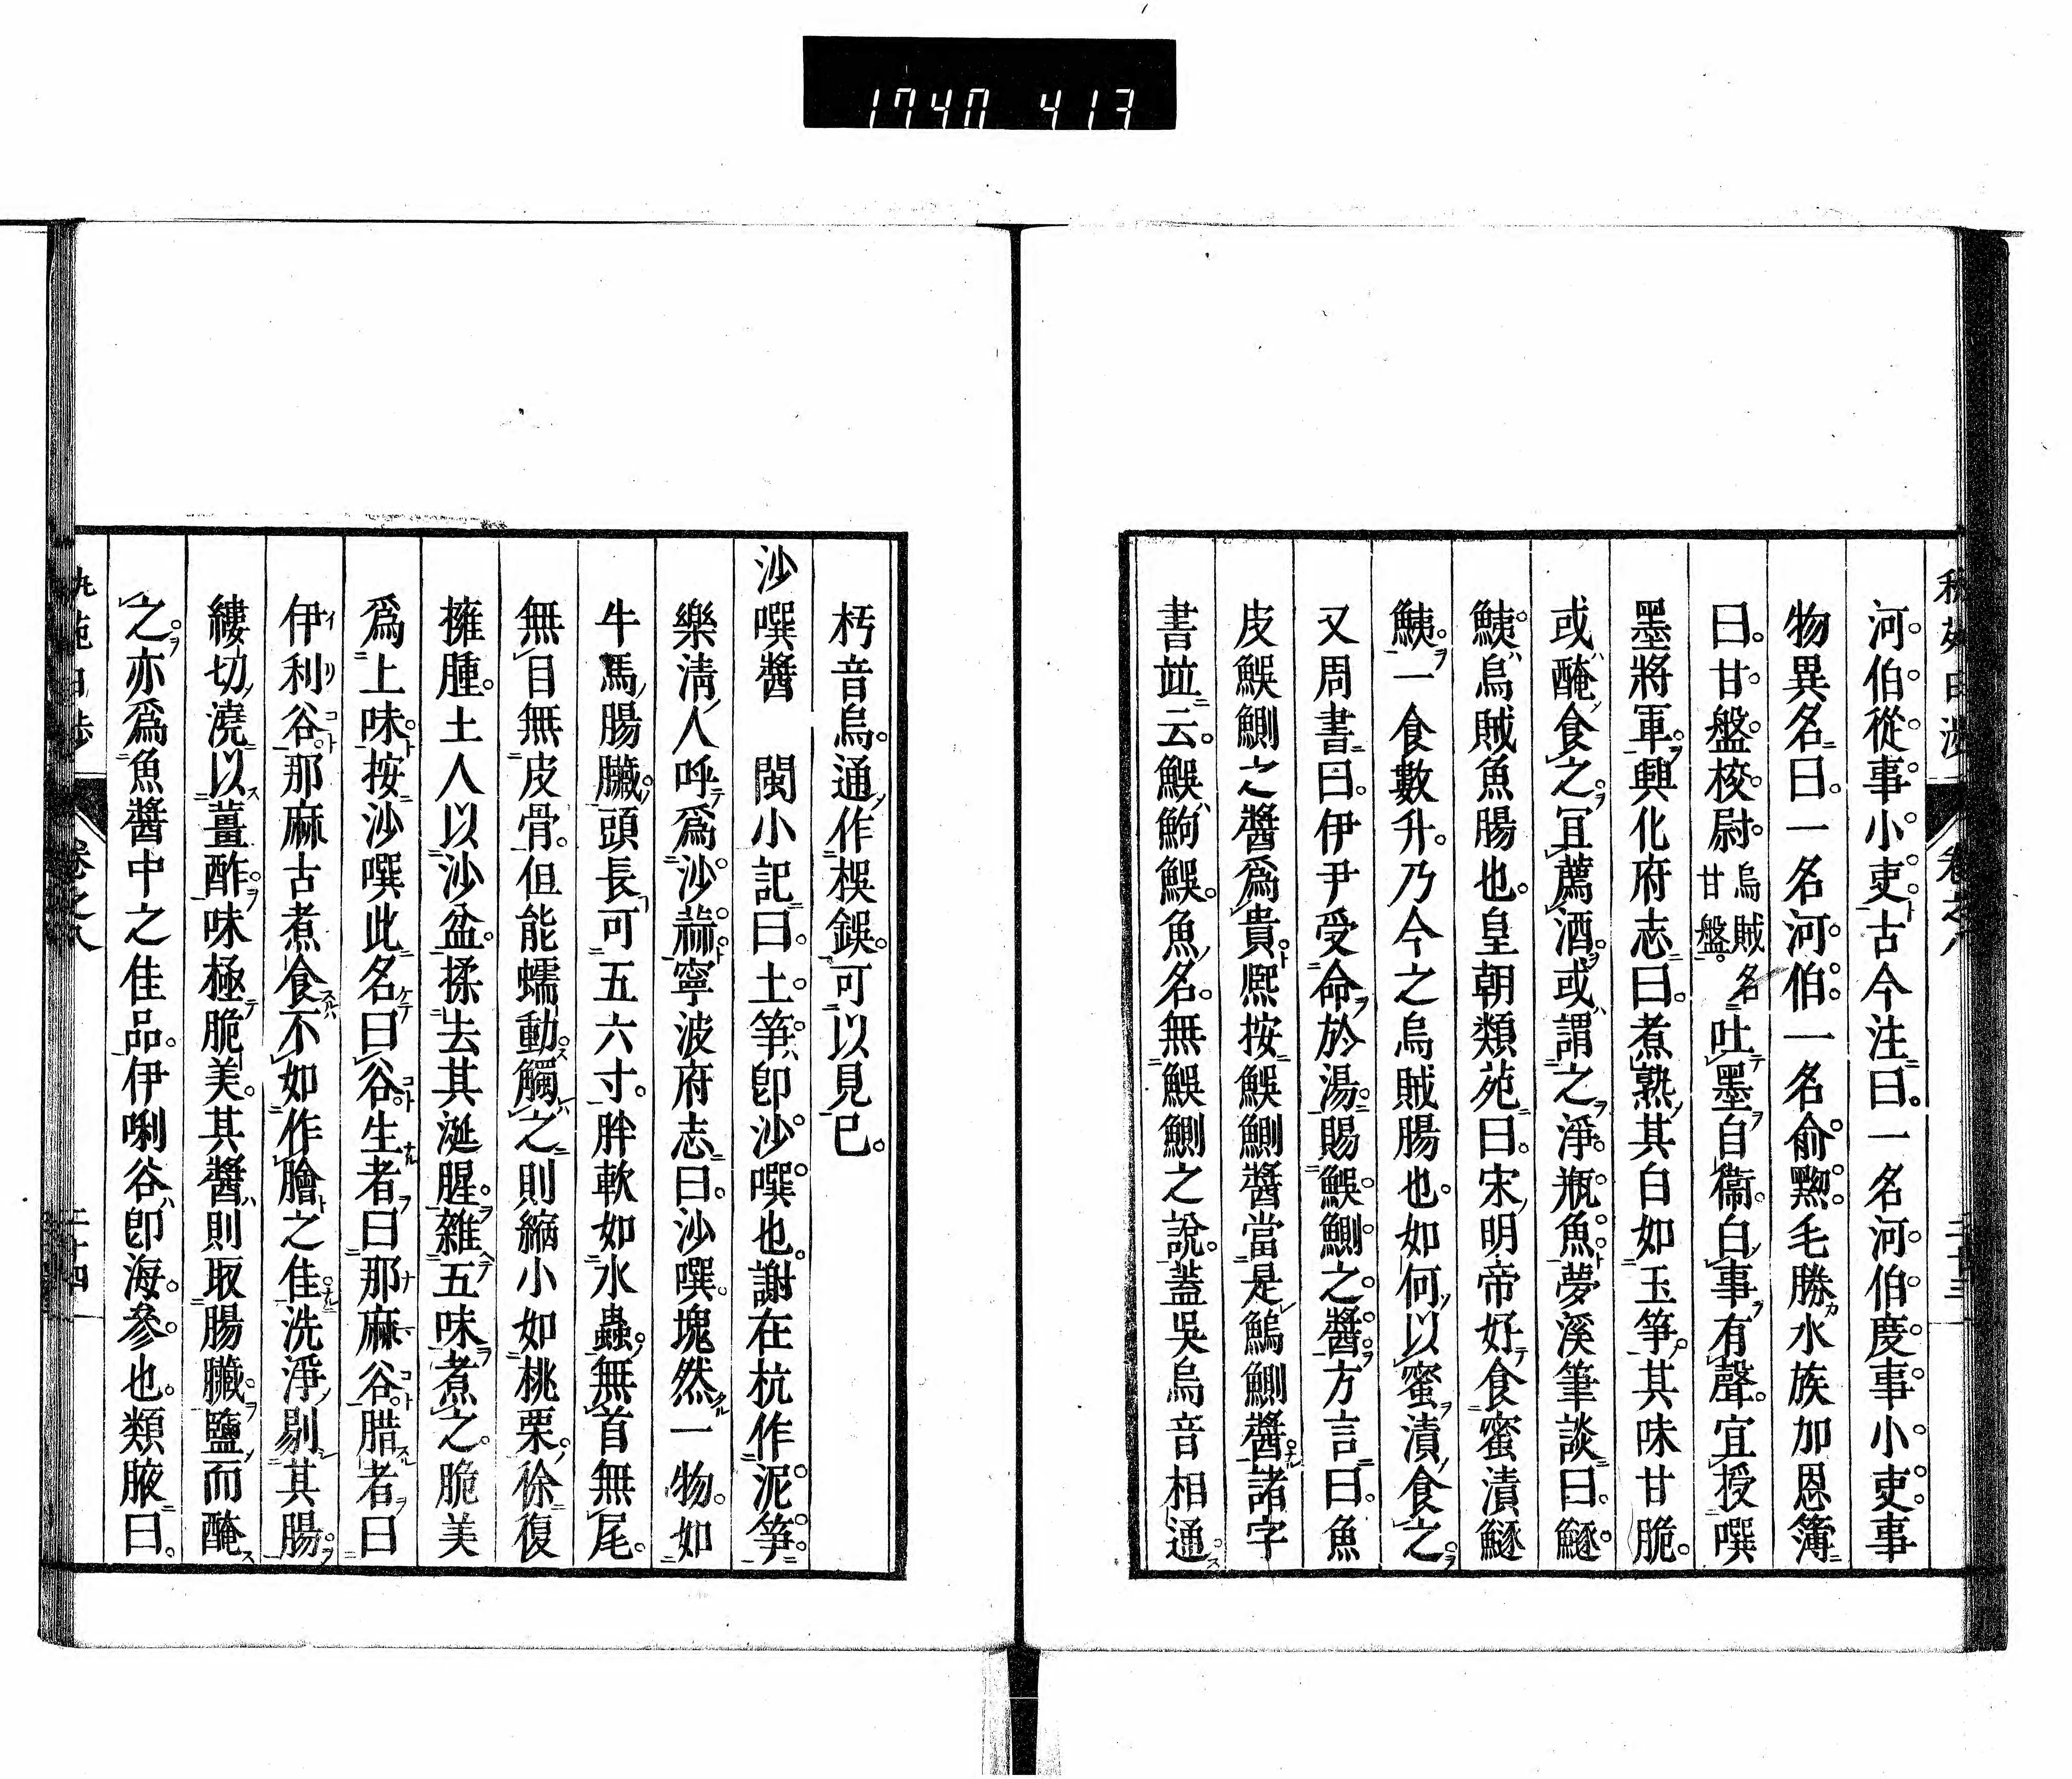 1740 413
河伯從事小吏古今注曰一名河伯度事小吏事
物異名曰一名河伯一名俞㸃毛勝水族加恩簿
曰甘盤校尉烏賊名甘盤吐墨自衞白事有聲宜授噀
墨將軍興化府志曰煮熟其白如玉筝其味甘脆
或醃食之冝薦酒或謂之淨瓶魚夢溪筆談曰鱁
鮧烏賊魚腸也皇朝類苑曰宋明帝好食蜜漬鱁
鮧一食數升乃今之烏賊腸也如何以蜜漬食之
又周書曰伊尹受命於湯賜鯸鰂之醬方言曰魚
皮鯸鰂之醬爲貴熈按鯸鰂醬當是鰞鰂醬諸字
書竝云鯸鮈鯸魚名無鯸鰂之說蓋吳烏音相通
朽音烏通作楔鋘可以見已
沙噀醬　閩小記曰土筝即沙噀也謝在杭作泥筝
樂淸人呼爲沙蒜寧波府志曰沙噀塊然一物如
牛馬腸臟頭長可五六寸胖軟如水蟲無首無尾
無目無皮骨但能蠕動觸之則縮小如桃栗徐復
擁腫土人以沙盆揉去其涎腥雜五味煮之脆美
爲上味按沙噀此名曰谷生者曰那麻谷腊者曰
伊利谷那麻古煮食不如作膾之佳洗淨剔其腸
縷切澆以薑酢味極脆美其醬則取腸臟鹽而醃
之亦爲魚醬中之佳品伊唎谷即海參也類腋曰
卷之八
二十四